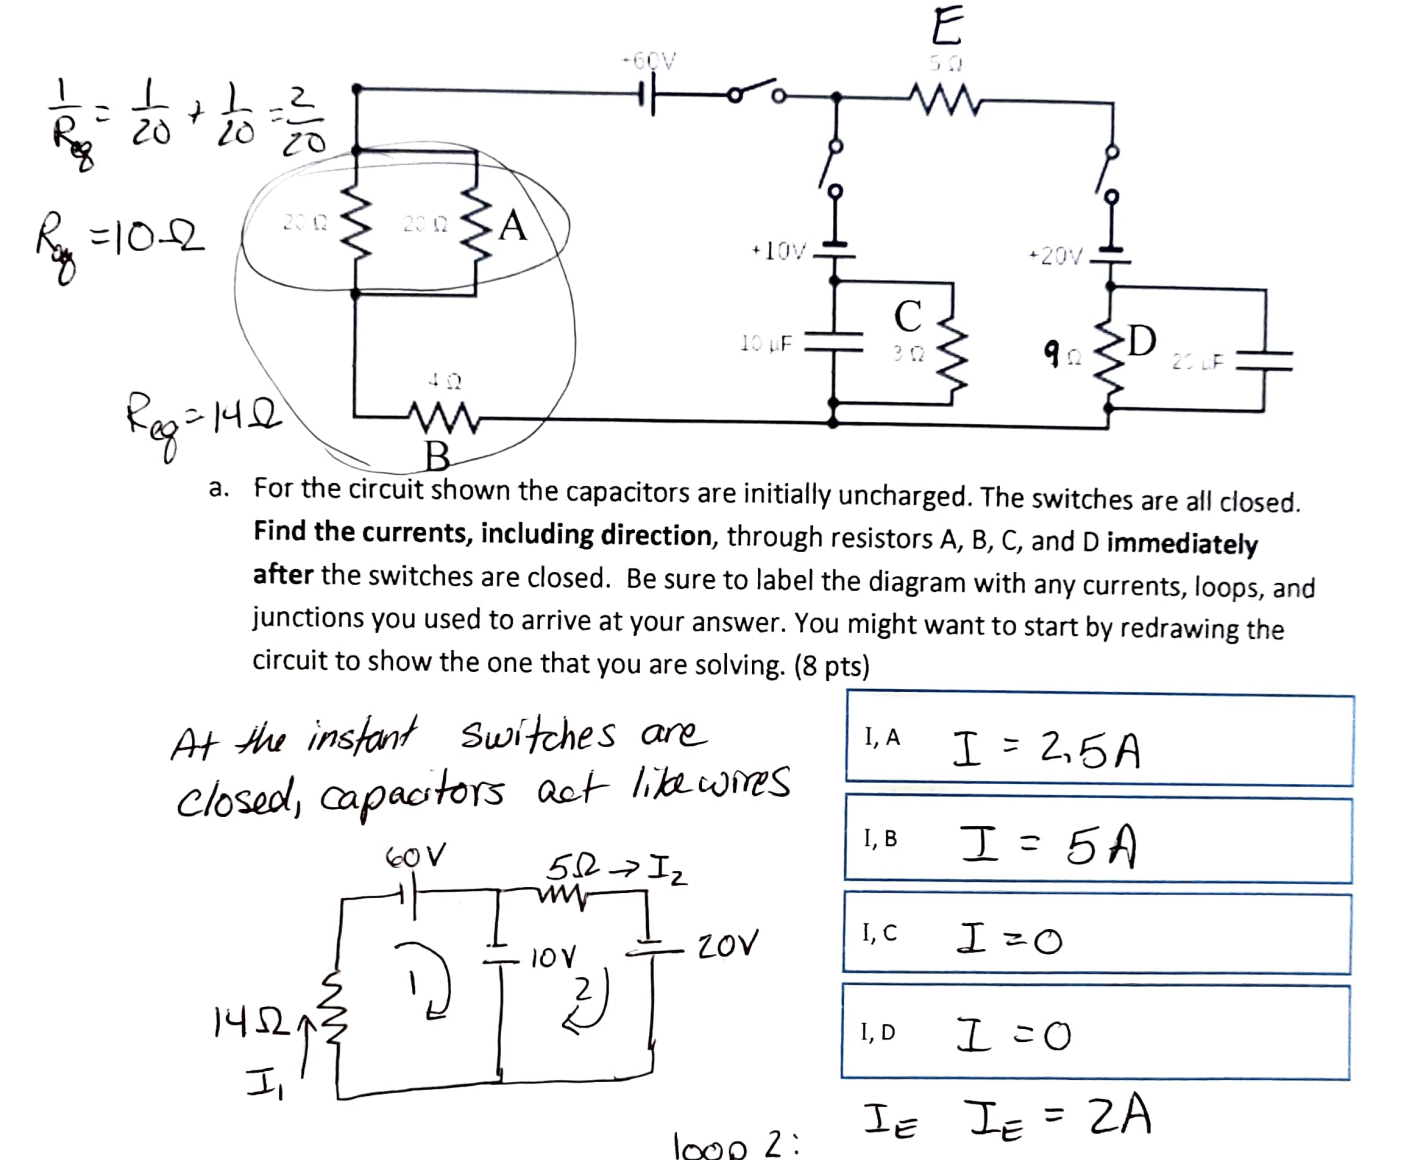 E
-60V
5 Ω
1/Req = 1/20 + 1/20 = 2/20
Req = 10Ω
20 Ω
20 Ω
A
+10V
+20V
10 μF
C
3 Ω
9 Ω
D
4 Ω
Req = 14Ω
B
a. For the circuit shown the capacitors are initially uncharged. The switches are all closed.
Find the currents, including direction, through resistors A, B, C, and D immediately
after the switches are closed. Be sure to label the diagram with any currents, loops, and
junctions you used to arrive at your answer. You might want to start by redrawing the
circuit to show the one that you are solving. (8 pts)
At the instant switches are
closed, capacitors act like wires
I, A I = 2.5A
I, B I = 5A
I, C I = 0
I, D I = 0
IE IE = 2A
60V
5Ω → I2
10V
20V
1
2
14Ω
I1
loop 2: